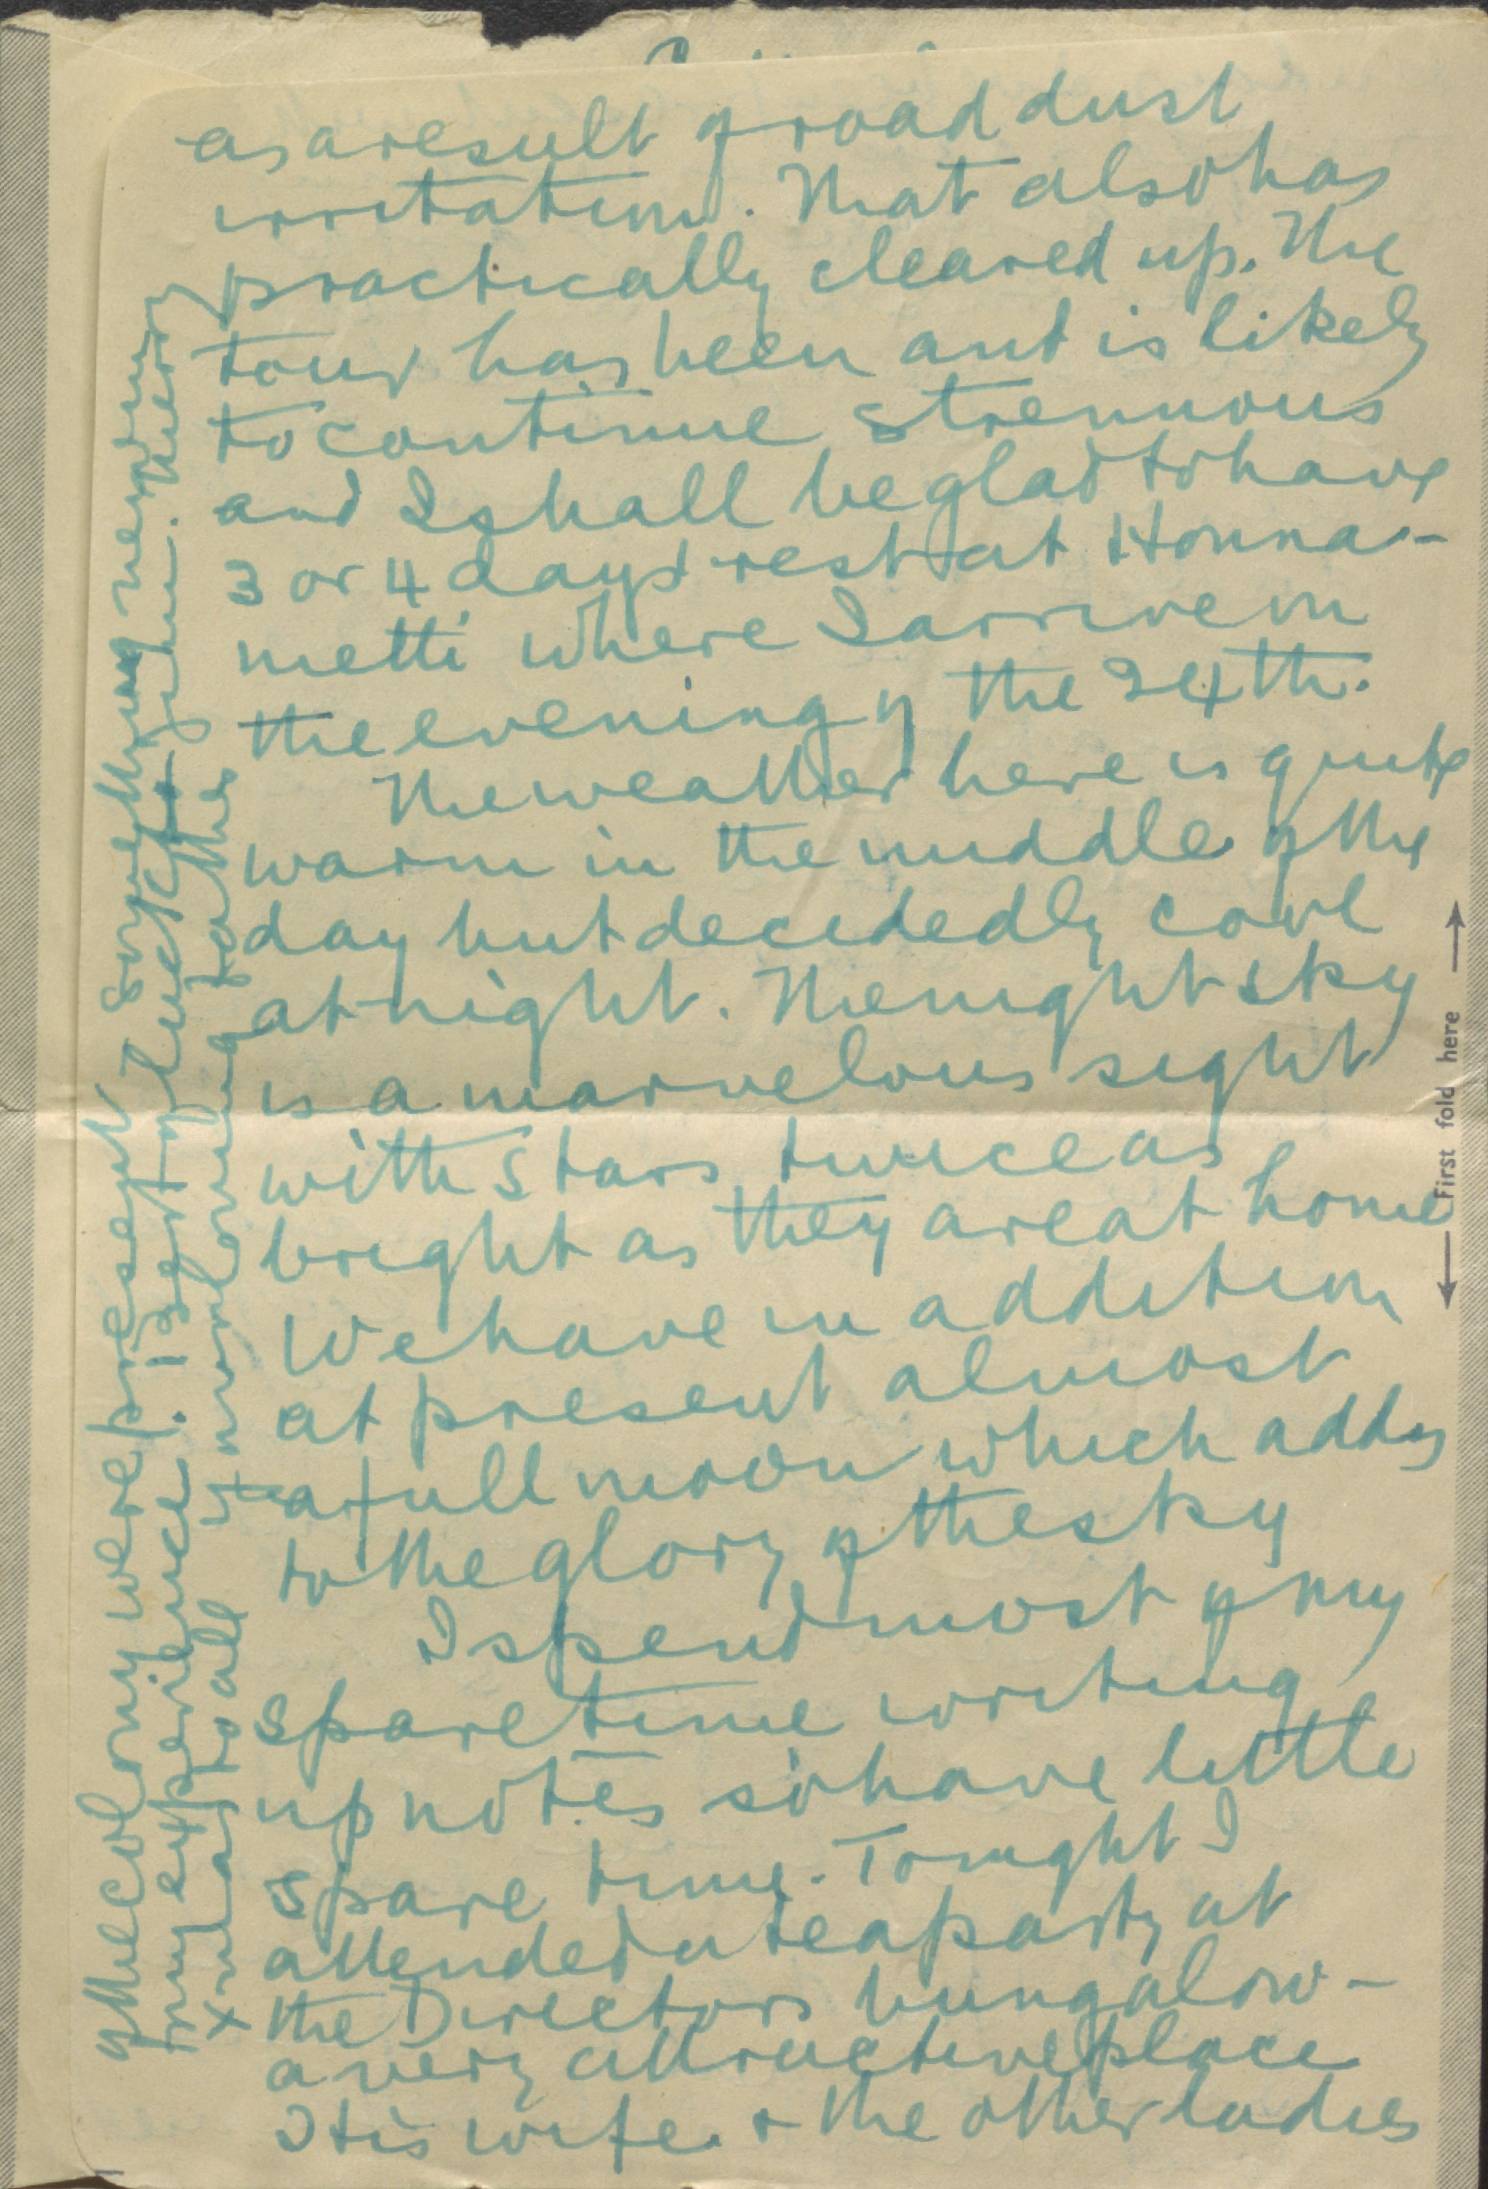 as a result of road dust
irritation. That also has
practically cleared up. The
tour has been and is likely
to continue strenuous
and I shall be glad to have
3 or 4 days rest at Honna-
metti where I arrive on
the evening of the 24th.
The weather here is quite
warm in the middle of the
day but decidedly cool
at night. The night sky
is a marvelous sight
with stars twice as
bright as they are at home
We have in addition
at present almost
a full moon which adds
to the glory of the sky
I spend most of my
spare time writing
up notes so have little
spare time. Tonight I
attended a tea party at
the Directors bungalow -
a very attractive place
His wife & the other ladies
of the colony were present Everything new in
my experience. Best of luck to Jim. Merry
Xmas to all Your loving father
← First fold here →